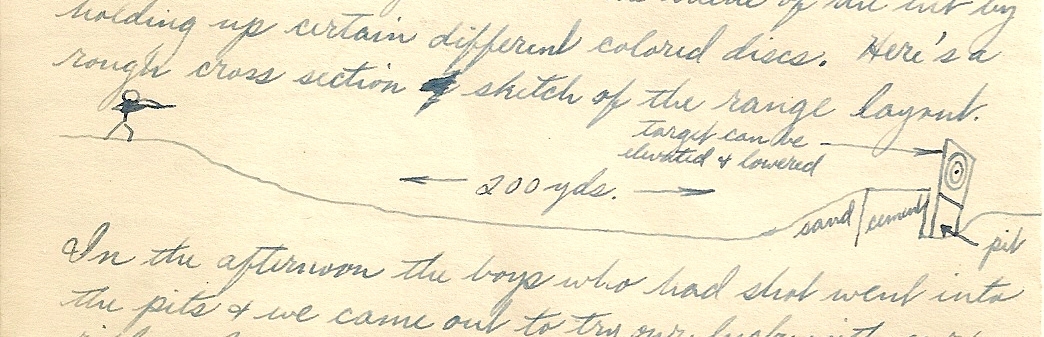 holding up certain different colored discs. Here's a
rough cross section sketch of the range layout.
target can be
elevated & lowered
200 yds.
sand
cement
pit
In the afternoon the boys who had shot went into
the pits & we came out to try our